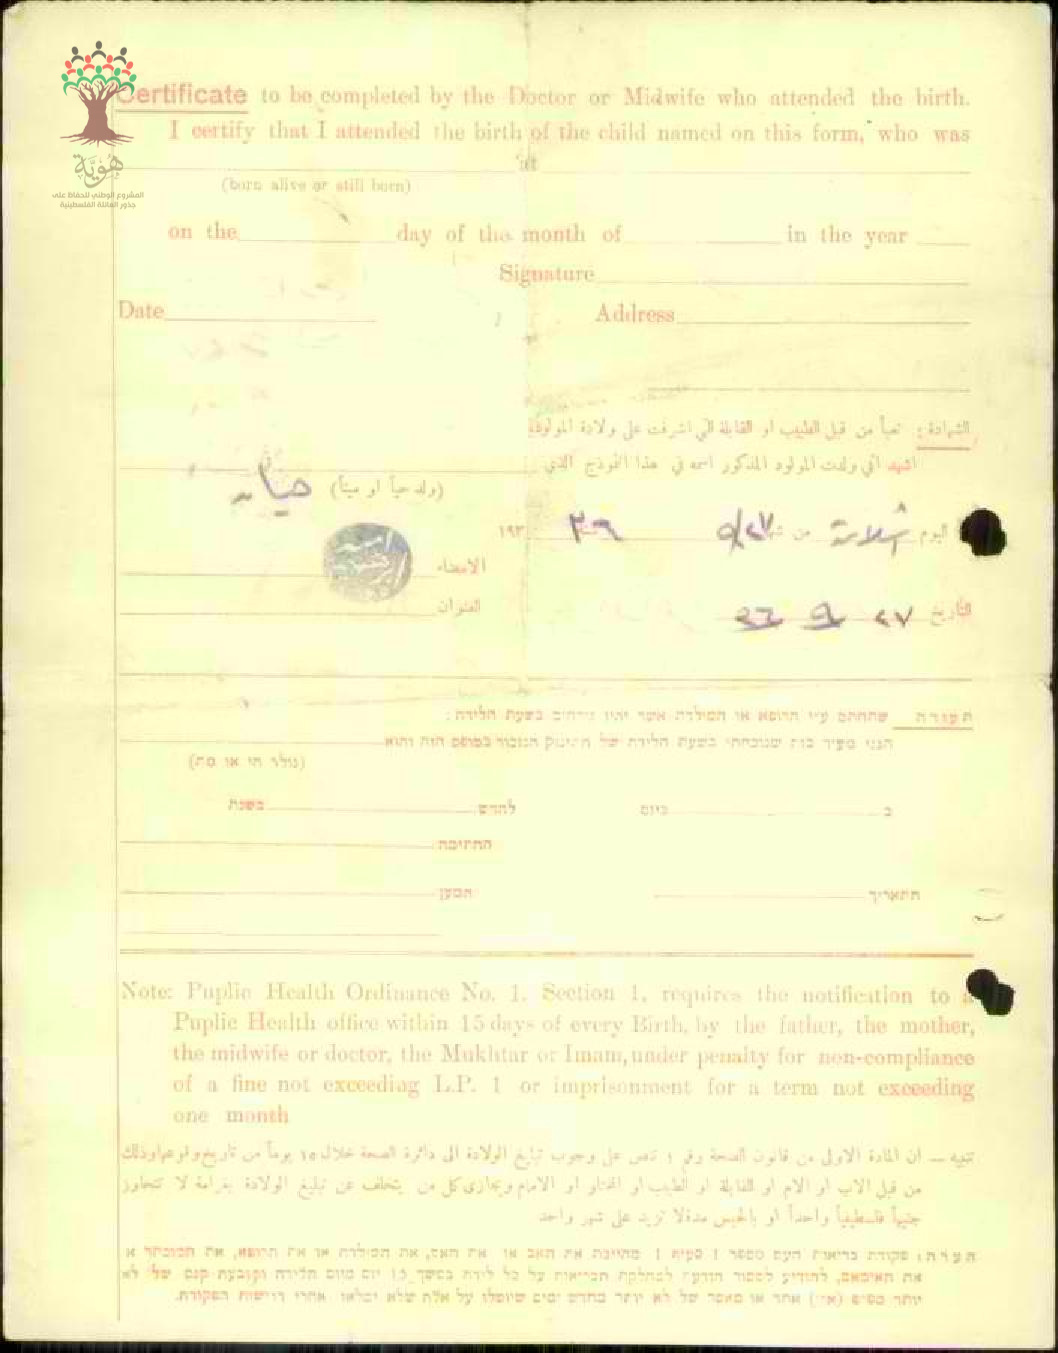 هُوِيَّة
المشروع الوطني للحفاظ على
جذور العائلة الفلسطينية
Certificate to be completed by the Doctor or Midwife who attended the birth.
I certify that I attended the birth of the child named on this form, who was
at
(born alive or still born)
on the day of the month of in the year
Signature
Date Address
الشهادة : تعبأ من قبل الطبيب او القابلة التي اشرفت على ولادة المولود
اشهد اني ولدت المولود المذكور اسمه في هذا النموذج الذي
في
(ولد حياً او ميتاً)
اليوم من شهر ٩/٢٧ ٣٦ ١٩٣
الامضاء
العنوان
التأريخ ٢٧ ٩ ٣٦
תעודה שתחתם ע״י הרופא או המילדת אשר יהיו נוכחים בשעת הלידה :
הנני מעיד בזה שנוכחתי בשעת הלידה של התינוק הנזכר בטופס הזה והוא
(נולד חי או מת)
ב ביום לחדש בשנת
החתימה
התאריך המען
Note: Puplic Health Ordinance No. 1. Section 1, requires the notification to a
Puplic Health office within 15 days of every Birth, by the father, the mother,
the midwife or doctor, the Mukhtar or Imam, under penalty for non-compliance
of a fine not exceeding L.P. 1 or imprisonment for a term not exceeding
one month
تنبيه — ان المادة الاولى من قانون الصحة رقم ١ تنص على وجوب تبليغ الولادة الى دائرة الصحة خلال ١٥ يوماً من تاريخ وقوعها وذلك
من قبل الاب او الام او القابلة او الطبيب او المختار او الامام ويجازى كل من يتخلف عن تبليغ الولادة بغرامة لا تتجاوز
جنيهاً فلسطينياً واحداً او بالحبس مدة لا تزيد على شهر واحد
הערה: פקודת בריאות העם מספר 1 סעיף 1 מחייבת את האב או את האם, את המילדת או את הרופא, את המוכתר או
את האימאם, להודיע למשרד מחלקת הבריאות על כל לידה במשך 15 יום מיום הלידה וקובעת קנס של לא